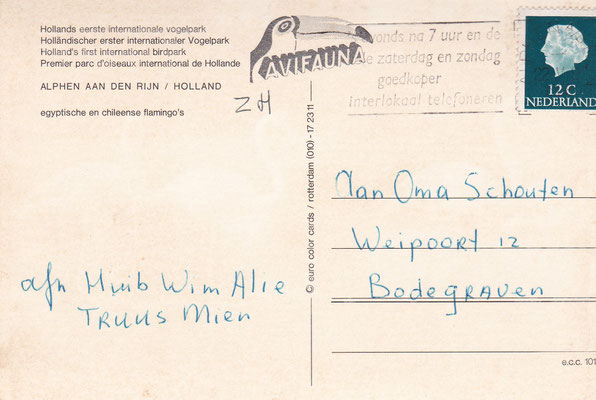 Hollands eerste internationale vogelpark
Holländischer erster internationaler Vogelpark
Holland's first international birdpark
Premier parc d'oiseaux international de Hollande
ALPHEN AAN DEN RIJN / HOLLAND
egyptische en chileense flamingo's
ZH
AVIFAUNA
vonds na 7 uur en de
le zaterdag en zondag
goedkoper
Interlokaal telefoneren
12 C
NEDERLAND
© euro color cards / rotterdam (010) - 17 23 11
Aan Oma Schouten
Weipoort 12
Bodegraven
afn Huib Wim Alie
TRUUS Mien
e.c.c. 101